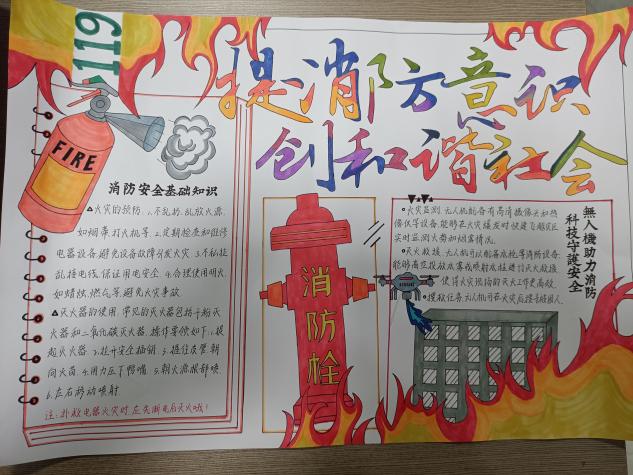 119
提消防意识
创和谐社会
FIRE
消防安全基础知识
▲火灾的预防：1.不乱扔、乱放火源，
如烟蒂、打火机等。2.定期检查和维修
电器设备，避免设备故障引发火灾。3.不私拉
乱接电线，保证用电安全。4.合理使用明火，
如蜡烛、燃气等，避免火灾事故。
▲灭火器的使用：常见的灭火器包括干粉灭
火器和二氧化碳灭火器。操作要领如下：1.提
起灭火器 2.拉开安全插销 3.握住皮管，朝
向火苗 4.用力压下鸭嘴 5.朝火源根部喷
6.左右移动喷射
注：扑救电器火灾时，应先断电后灭火哦！
消防栓
無人機助力消防
科技守護安全
火灾监测：无人机配备有高清摄像头和热
像仪等设备，能够在火灾
实时监测火势和烟雾情况。
灭火救援：无人机可以配备水枪等消防设备，
能够高空投放水雾或喷射水柱进行灭火救援
使得火灾现场的灭火工作更高效。
搜救任务：无人机可在火灾后搜寻被困人。